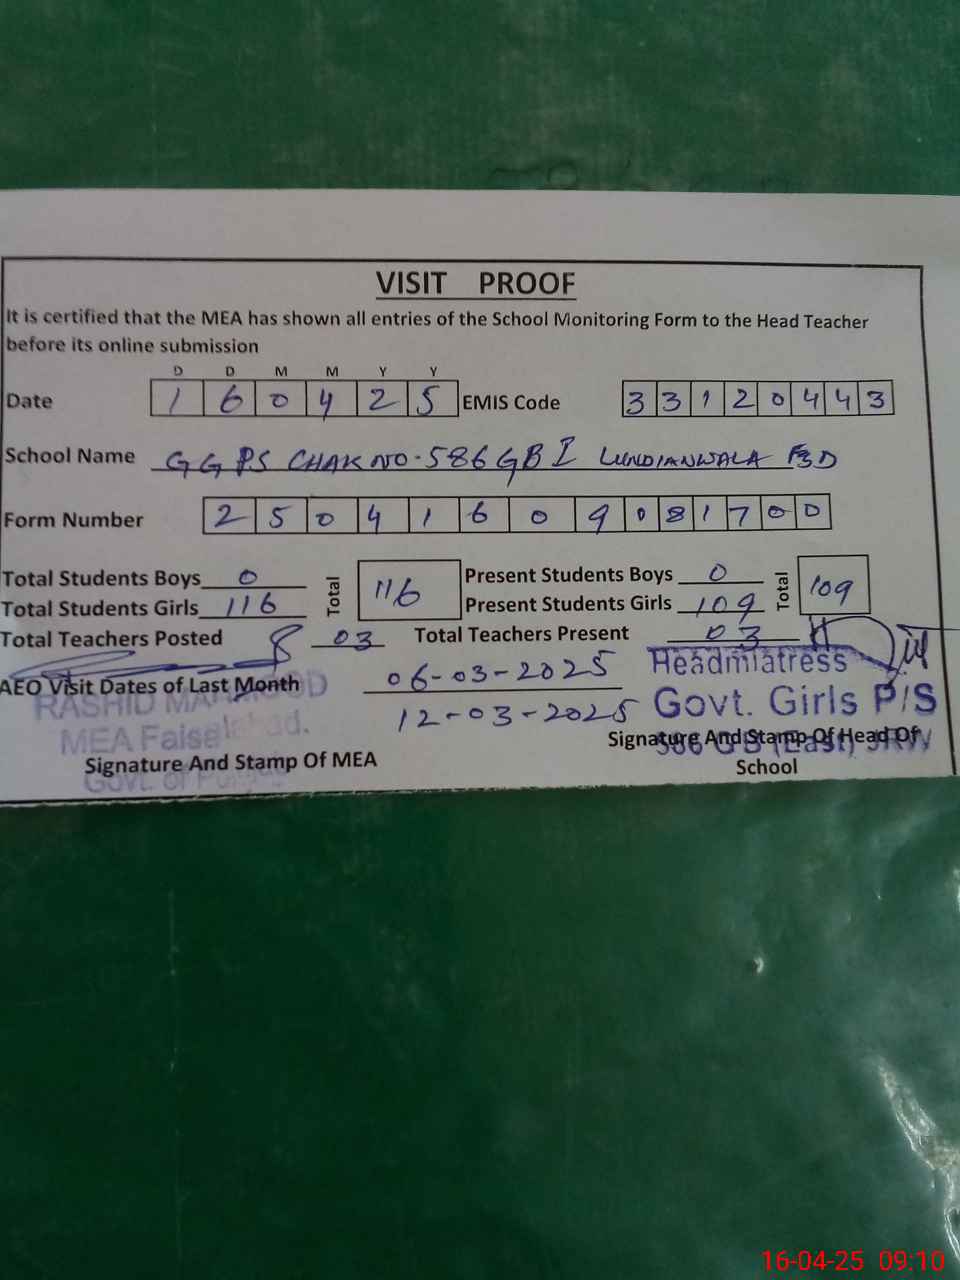 VISIT PROOF
It is certified that the MEA has shown all entries of the School Monitoring Form to the Head Teacher
before its online submission
D D M M Y Y
Date 1 6 0 4 2 5 EMIS Code 3 3 1 2 0 4 4 3
School Name GGPS CHAK NO. 586 GB I LUNDIANWALA FSD
Form Number 2 5 0 4 1 6 0 9 0 8 1 7 0 0
Total Students Boys 0 Total 116 Present Students Boys 0 Total 109
Total Students Girls 116 Present Students Girls 109
Total Teachers Posted 03 Total Teachers Present 03
AEO Visit Dates of Last Month 06-03-2025
12-03-2025
RASHID MAHMOOD
MEA Faisalabad.
Govt. of Punjab
Signature And Stamp Of MEA
Headmiatress
Govt. Girls P/S
586 GB (East) JRW
Signature And Stamp Of Head Of
School
16-04-25 09:10